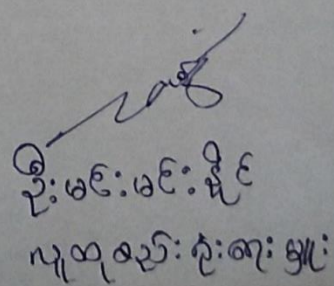 ဦးမင်းမင်းနိုင်
လူထုစည်းရုံးရေးမှူး